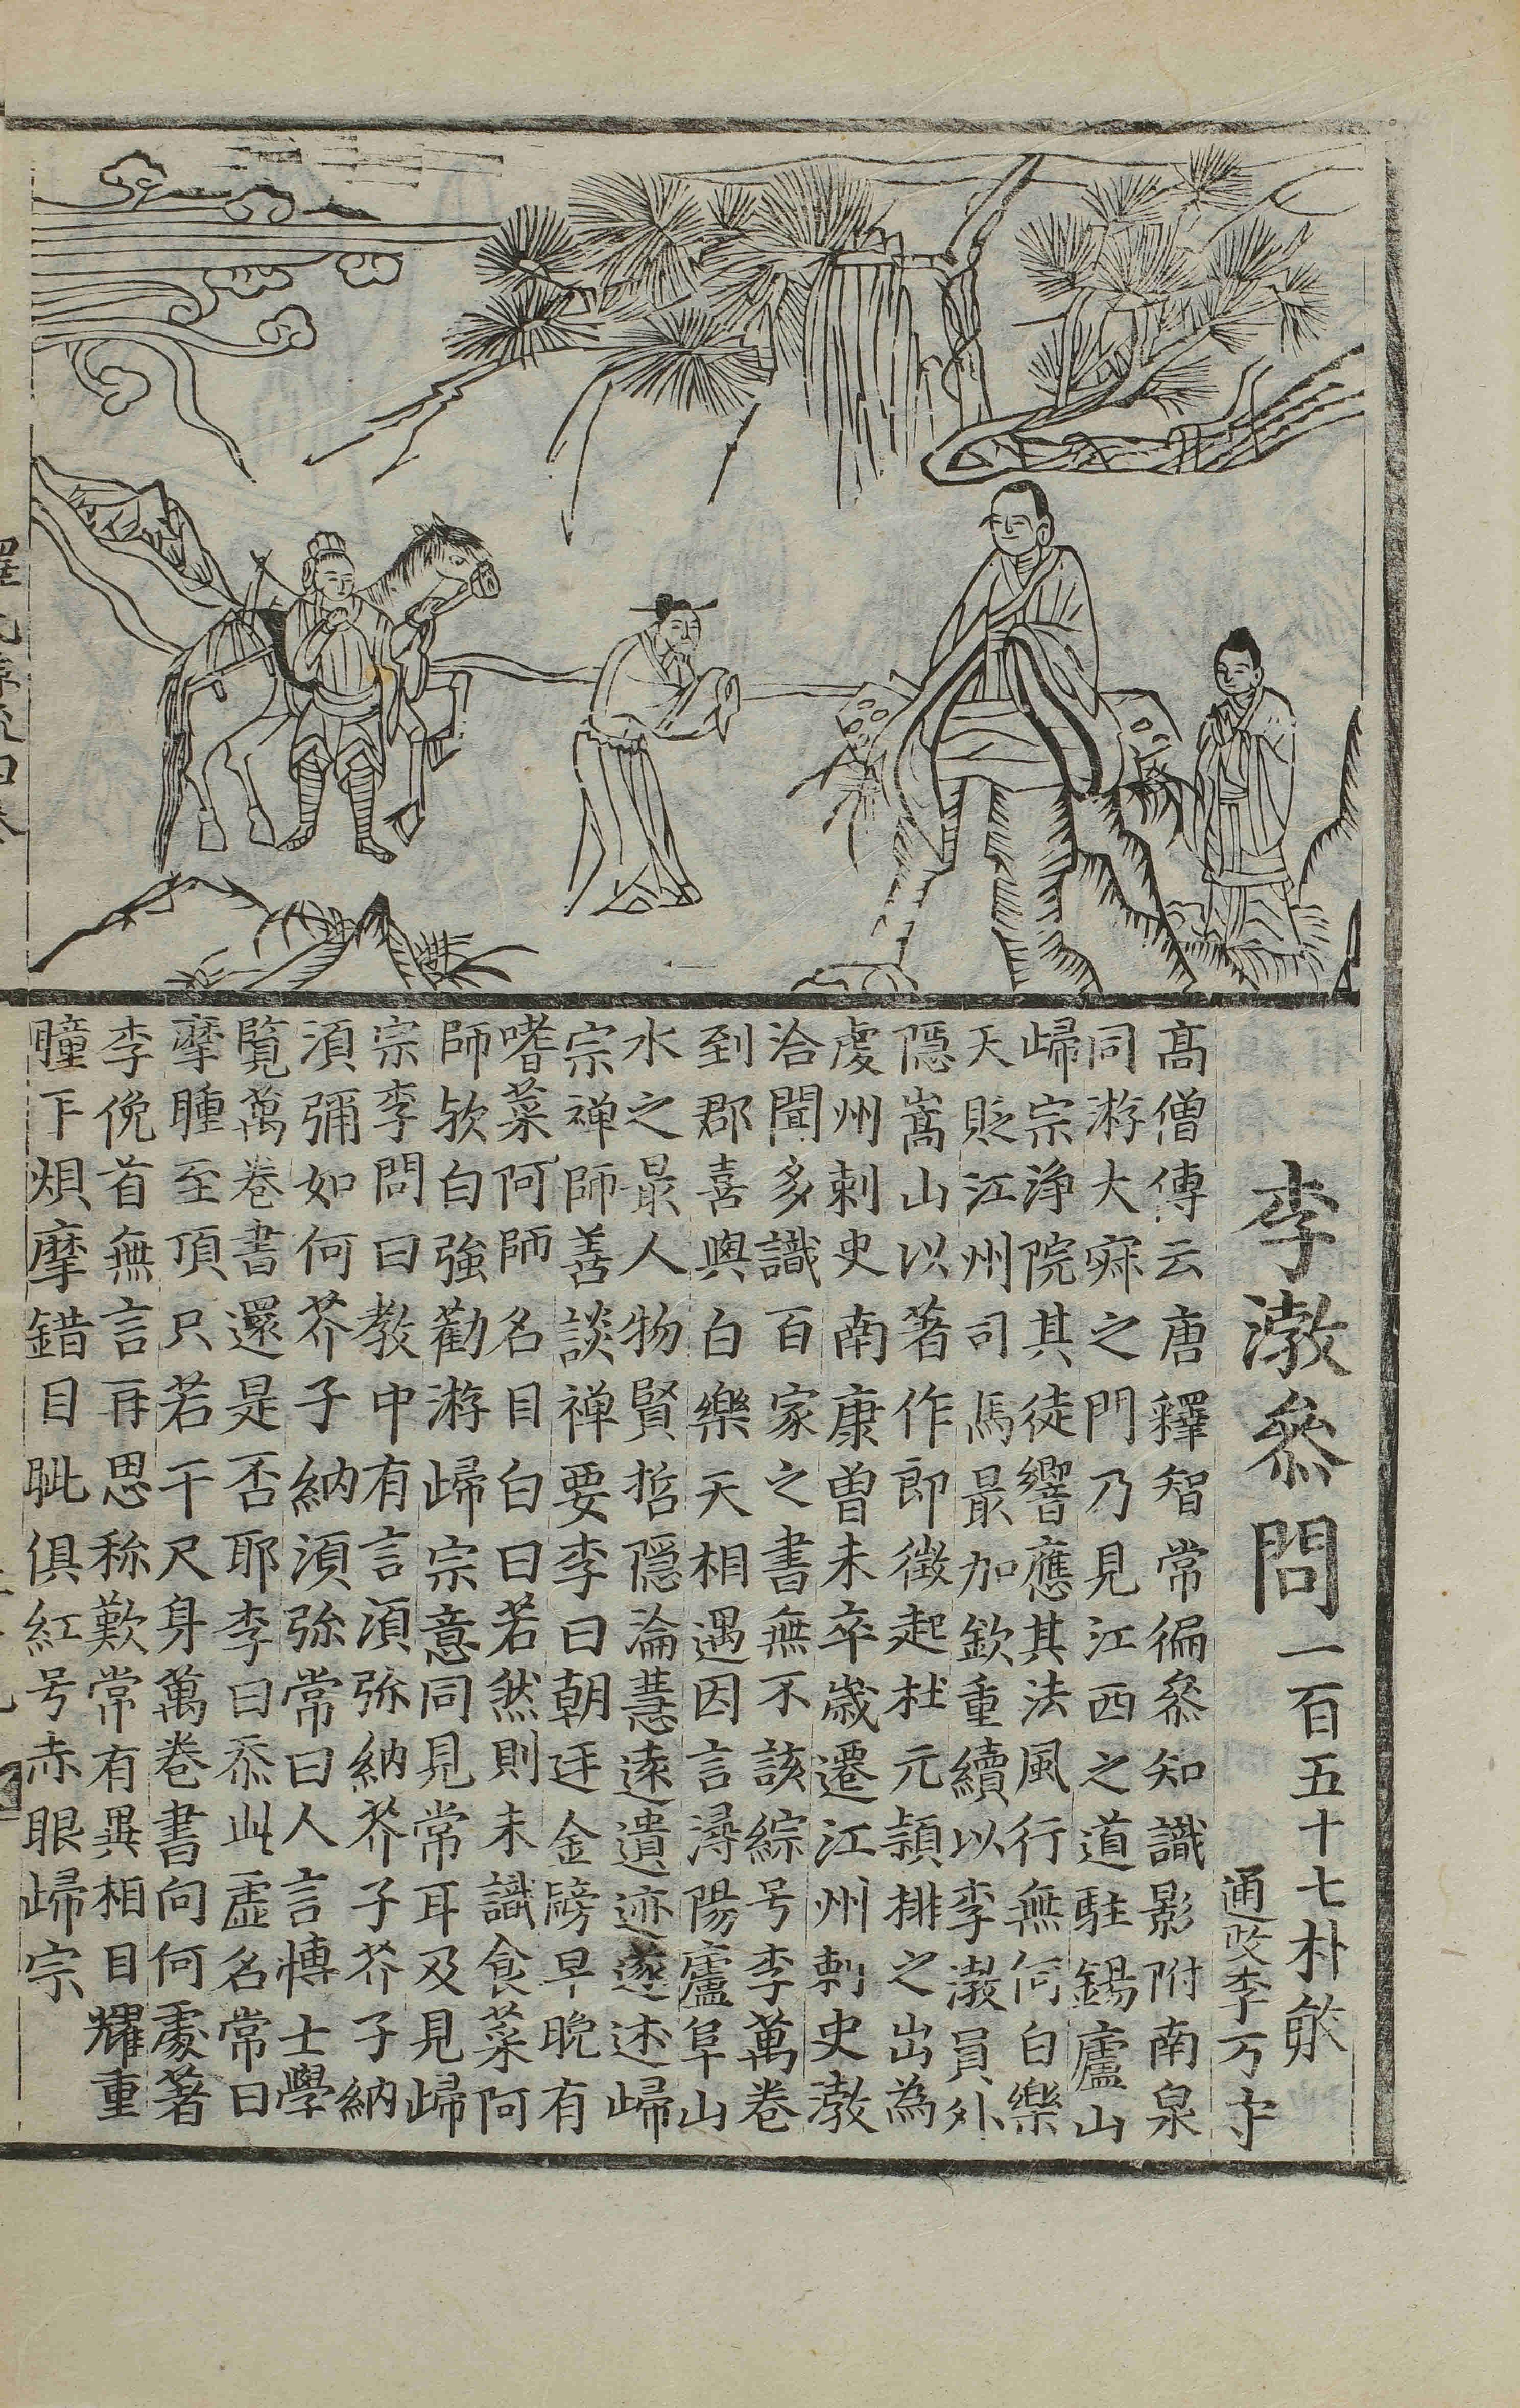 李潡叅問一百五十七
通政李万守
高僧傳云唐釋智常徧叅知識影附南泉
同游大寂之門乃見江西之道駐錫廬山
歸宗淨院其徒響應其法風行無何白樂
天貶江州司馬最加欽重續以李潡員外
隱嵩山以著作郎徵起杜元穎排之出為
虔州刺史南康曾未卒歳遷江州刺史潡
洽聞多識百家之書無不該綜号李萬卷
到郡喜與白樂天相遇因言潯陽廬阜山
水之最人物賢哲隱淪慧遠遺迹遂述歸
宗禅師善談禅要李曰朝廷金牓早晚有
嗜菜阿師名目白曰若然則未識食菜阿
師欤白強勸游歸宗意同見常耳及見歸
宗李問曰教中有言湏弥納芥子芥子納
湏彌如何芥子納湏弥常曰人言愽士學
覧萬卷書還是否耶李曰忝此虛名常曰
摩踵至頂只若干尺身萬卷書向何處著
李俛首無言再思称歎常有異相目耀重
瞳下煩摩錯目眦俱紅号赤眼歸宗